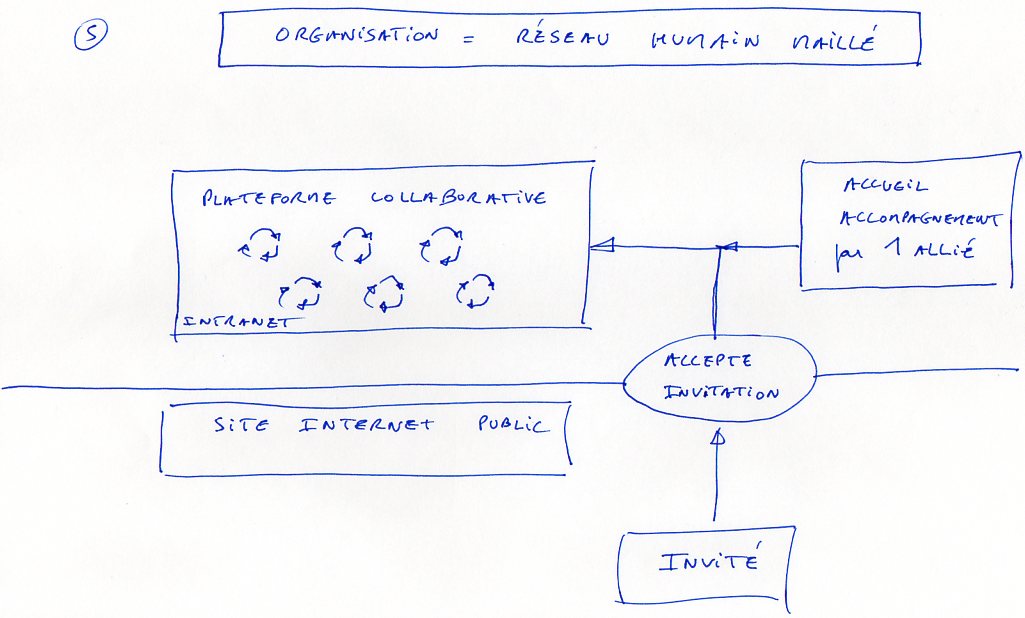 5
ORGANISATION = RÉSEAU HUMAIN MAILLÉ
PLATEFORME COLLABORATIVE
INTRANET
ACCUEIL
ACCOMPAGNEMENT
par 1 ALLIÉ
ACCEPTE
INVITATION
SITE INTERNET PUBLIC
INVITÉ